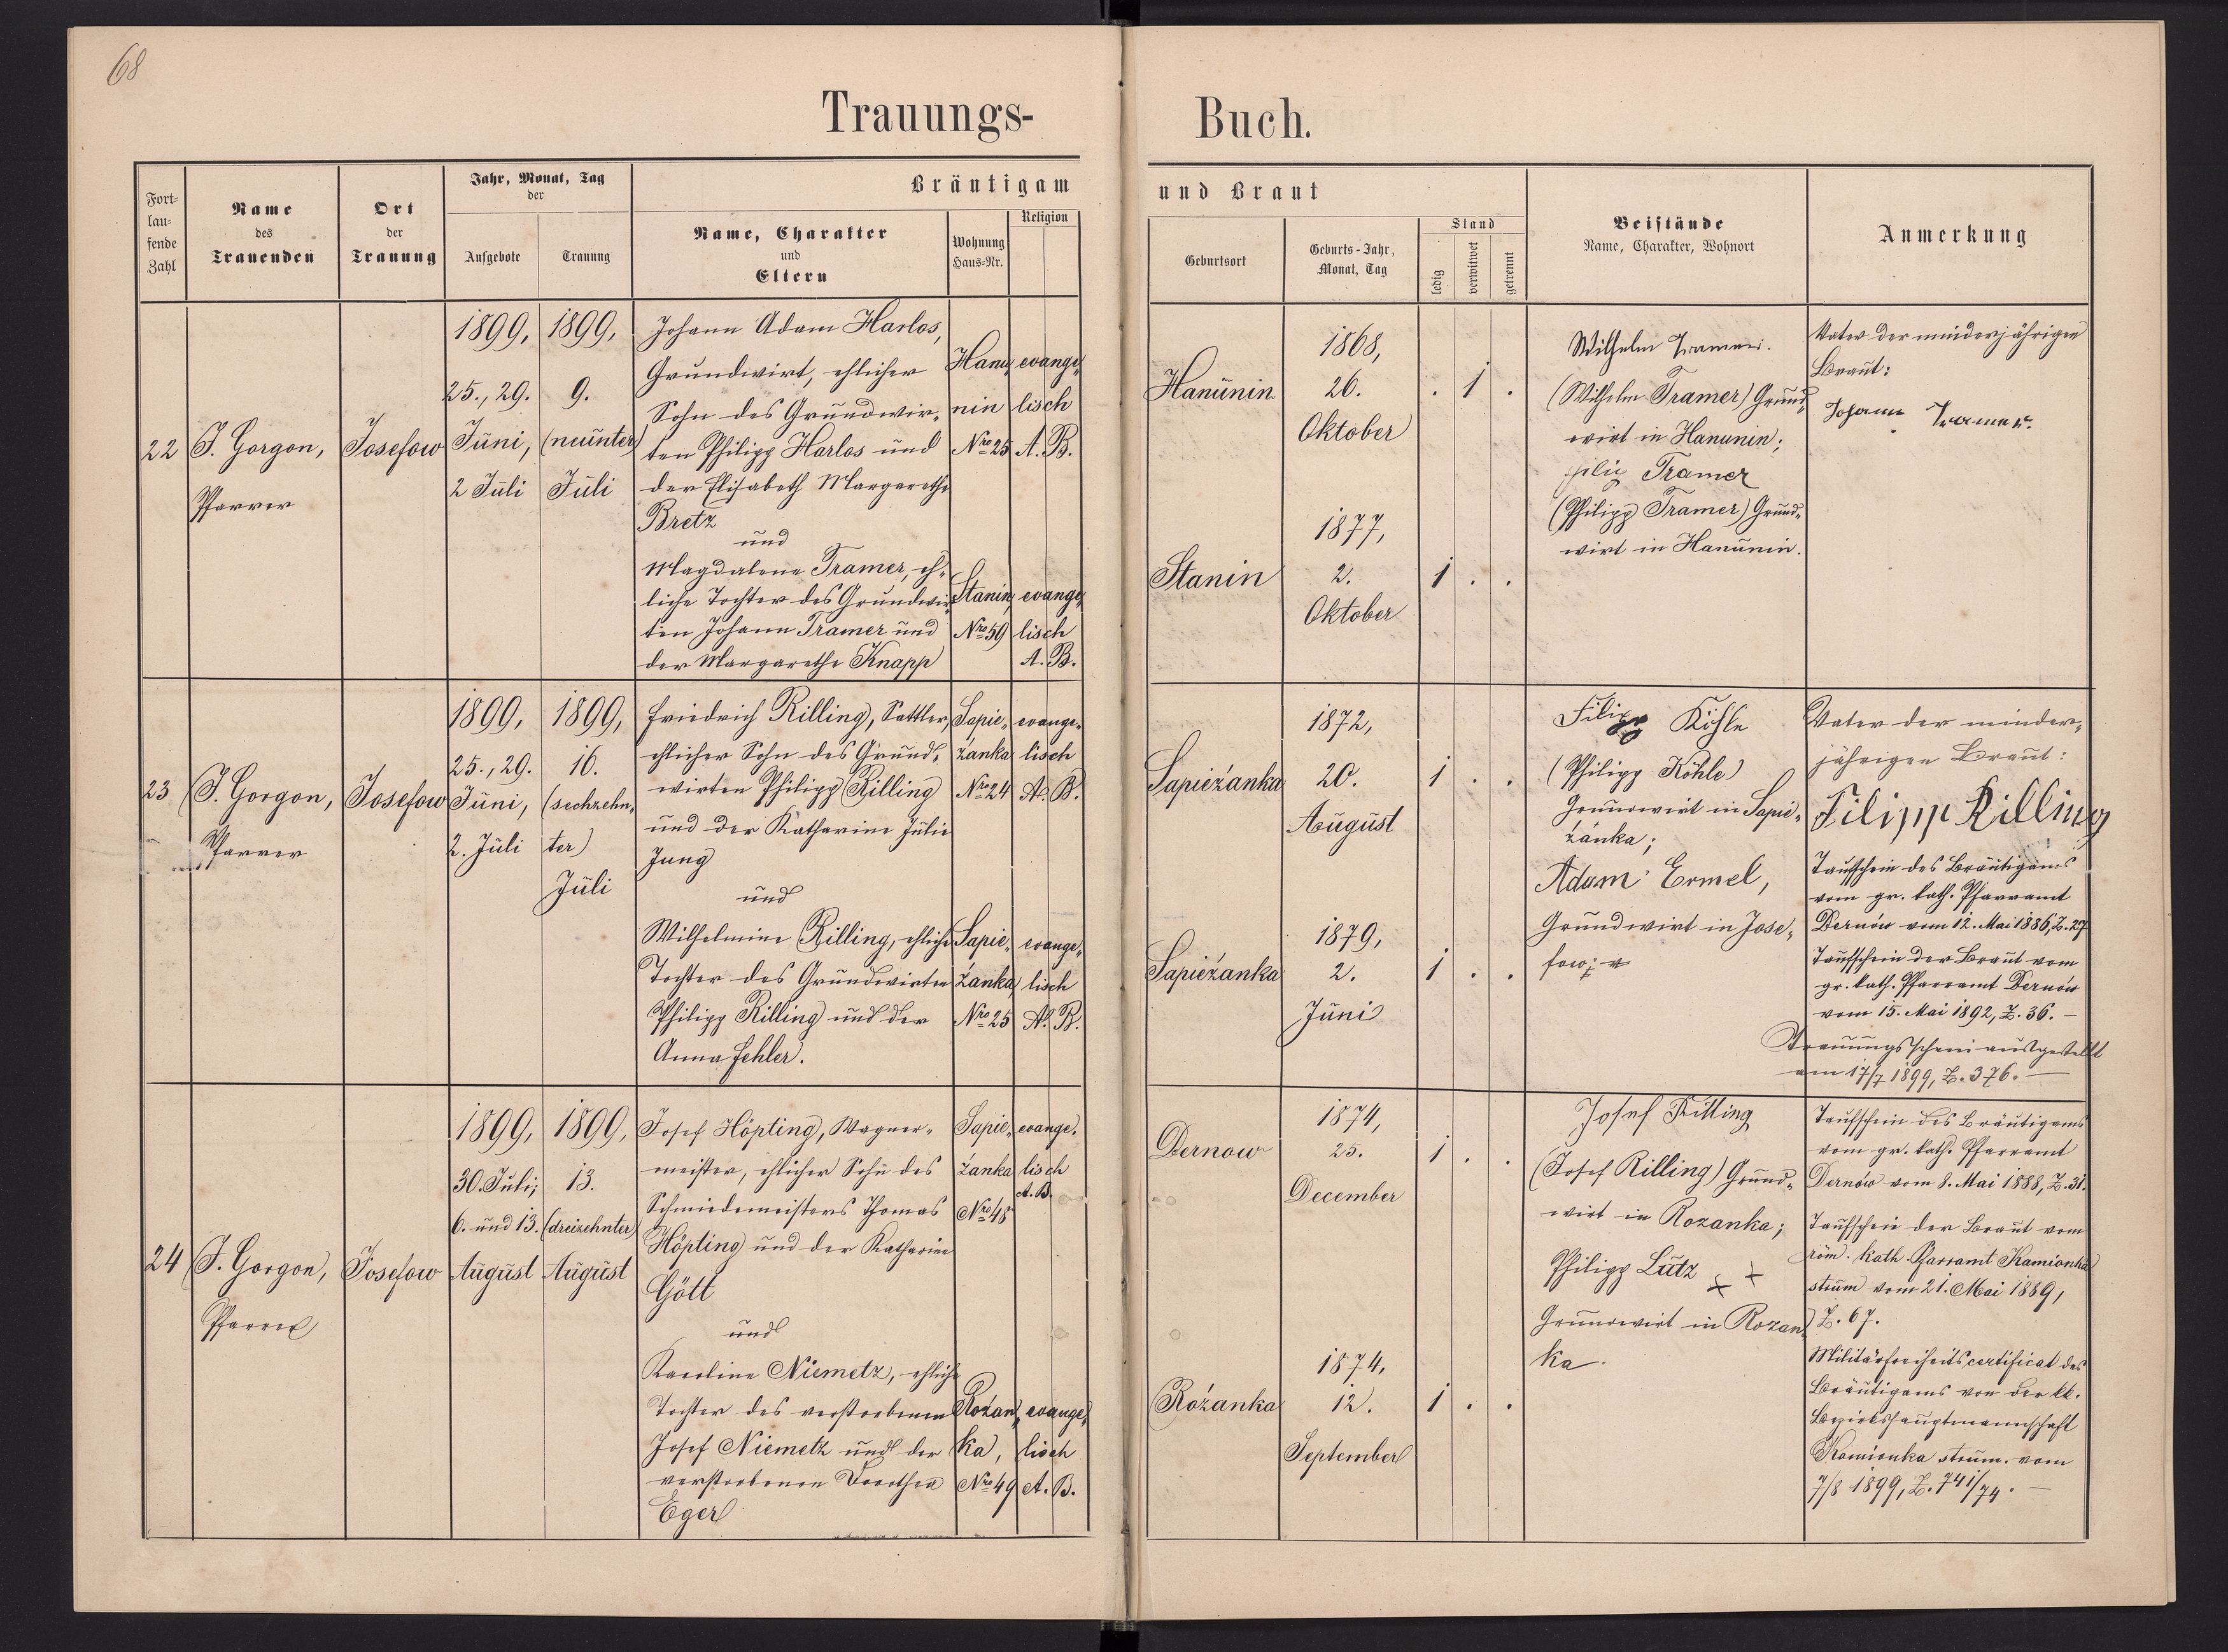 68
Trauungs-
Buch.
Fort-
lau-
fende
Zahl
Name
des
Trauenden
Ort
der
Trauung
Jahr, Monat, Tag
der
Aufgebote
Trauung
Bräutigam
Name, Charakter
und
Eltern
Wohnung
Haus-Nr.
Religion
und Braut
Geburtsort
Geburts-Jahr,
Monat, Tag
Stand
ledig
verwitwet
getrennt
Beistände
Name, Charakter, Wohnort
Anmerkung
22
J. Gorgon,
Pfarrer
Josefow
1899,
25., 29.
Juni,
2 Juli
1899,
9.
(neunter)
Juli
Johann Adam Harlos,
Grundwirt, ehlicher
Sohn des Grundwir-
ten Philipp Harlos und
der Elisabeth Margarethe
Bretz
und
Magdalena Tramer, eh-
liche Tochter des Grundwir-
ten Johann Tramer und
der Margarethe Knapp
Hanu-
nin
Nro 25
evange-
lisch
A. B.
Stanin,
Nro 59
evange-
lisch
A. B.
Hanunin
1868,
26.
Oktober
. 1 .
Stanin
1877,
2.
Oktober
1 . .
Wilhelm
(Wilhelm Tramer) Grund-
wirt in Hanunin;
Tramer
(Philipp Tramer) Grund-
wirt in Hanunin.
Vater der minderjährigen
Braut:
Johann Tramer.
23
J. Gorgon,
Pfarrer
Josefow
1899,
25., 29.
Juni,
2. Juli
1899,
16.
(sechzehn-
ter)
Juli
Friedrich Rilling, Sattler,
ehlicher Sohn des Grund-
wirten Philipp Rilling
und der Katharine Julie
Jung
und
Wilhelmine Rilling, ehliche
Tochter des Grundwirten
Philipp Rilling und der
Anna Fehler.
Sapie-
żanka
Nro 24
evange-
lisch
A. B.
Sapie-
żanka,
Nro 25
evange-
lisch
A. B.
Sapieżanka
1872,
20.
August
1 . .
Sapieżanka
1879,
2.
Juni
1 . .
Filipp Köhle
(Philipp Köhle)
Grundwirt in Sapie-
żanka;
Adam Ermel,
Grundwirt in Jose-
fow;
Vater der minder-
jährigen Braut:
Filipp Rilling
Taufschein des Bräutigams
vom gr. kath. Pfarramt
Dernów vom 12. Mai 1886, Z. 27
Taufschein der Braut vom
gr. kath. Pfarramt Dernów
vom 15. Mai 1892, Z. 36. —
Trauungsschein ausgestellt
am 17/7 1899, Z. 376. —
24
J. Gorgon,
Pfarrer
Josefow
1899,
30. Juli;
6. und 13.
August
1899,
13.
(dreizehnter)
August
Josef Höpting, Wagner-
meister, ehlicher Sohn des
Schmiedemeisters Thomas
Höpting und der Katharine
Gött
und
Karoline Niemetz, ehliche
Tochter des verstorbenen
Josef Niemetz und der
verstorbenen Dorothea
Eger
Sapie-
żanka
Nro 48
evange-
lisch
A. B.
Rożan-
ka,
Nro 49
evange-
lisch
A. B.
Dernow
1874,
25.
December
1 . .
Rożanka
1874,
12.
September
1 . .
Josef Rilling
(Josef Rilling) Grund-
wirt in Rozanka;
Philipp Lutz
Grundwirt in Rozan-
ka.
Taufschein des Bräutigams
vom gr. kath. Pfarramt
Dernów vom 8. Mai 1888, Z. 31.
Taufschein der Braut vom
röm. kath. Pfarramt Kamionka
strum vom 21. Mai 1889,
Z. 67.
Militärfreiheitscertificat des
Bräutigams von der kk.
Bezirkshauptmannschaft
Kamionka strum. vom
7/8 1899, Z. 741/74. —